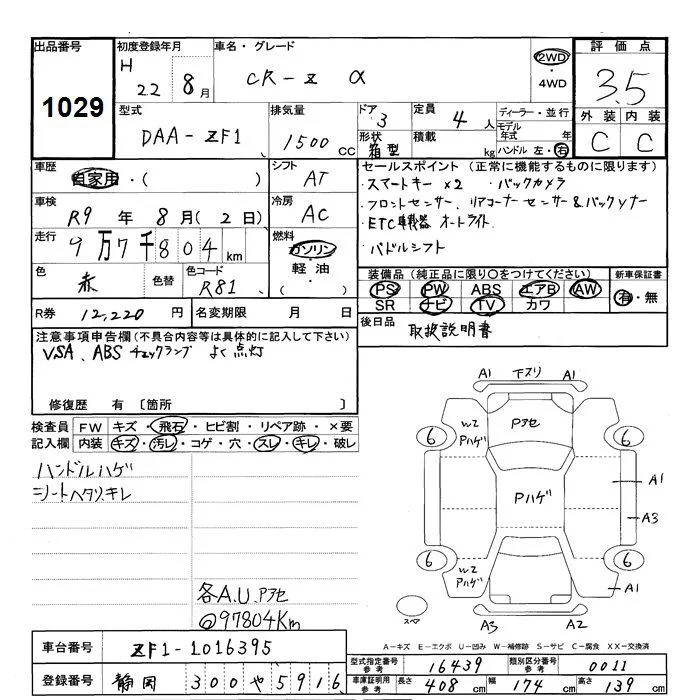 出品番号 1029
初度登録年月 H 22 年 8月
車名・グレード CR-Z α
2WD・4WD
評価点 3.5
外装 C 内装 C
型式 DAA-ZF1
排気量 1500 cc
ドア 3
形状 箱型
定員 4 人
積載 kg
ディーラー・並行
モデル年式 年
ハンドル 左・右
車歴 自家用・( )
シフト AT
車検 R9 年 8月(2日)
冷房 AC
走行 9万7千804km
燃料 ガソリン・軽油・( )
色 赤 色替 色コード R81
R券 12,220 円 名変期限 月 日
セールスポイント (正常に機能するものに限ります)
・スマートキー×2 ・バックカメラ
・フロントセンサー、リアコーナーセンサー&バックソナー
・ETC車載器 オートライト
・パドルシフト
装備品 (純正品に限り○をつけてください) 新車保証書
PS PW ABS エアB AW 有・無
SR ナビ TV カワ
後日品 取扱説明書
注意事項申告欄 (不具合内容等は具体的に記入して下さい)
VSA、ABS チェックランプ よく点灯
修復歴 有 〔箇所 〕
検査員記入欄 FW キズ・飛石・ヒビ割・リペア跡・×要
内装 キズ・汚レ・コゲ・穴・スレ・キレ・破レ
ハンドルハゲ
シートヘタリ、キレ
各A.U.アセ
@97804Km
A1 下スリ A1
W2 Pハゲ Pアセ
6 6
Pハゲ A1
A3
6 W2 Pハゲ 6
A1
スペア A3 A2
A-キズ E-エクボ U-凹み W-補修跡 S-サビ C-腐食 XX-交換済
車台番号 ZF1-1016395
型式指定番号 参考 16439 類別区分番号 参考 0011
登録番号 静岡 300 や 5916
車庫証明用 参考 長さ 408 cm 幅 174 cm 高さ 139 cm